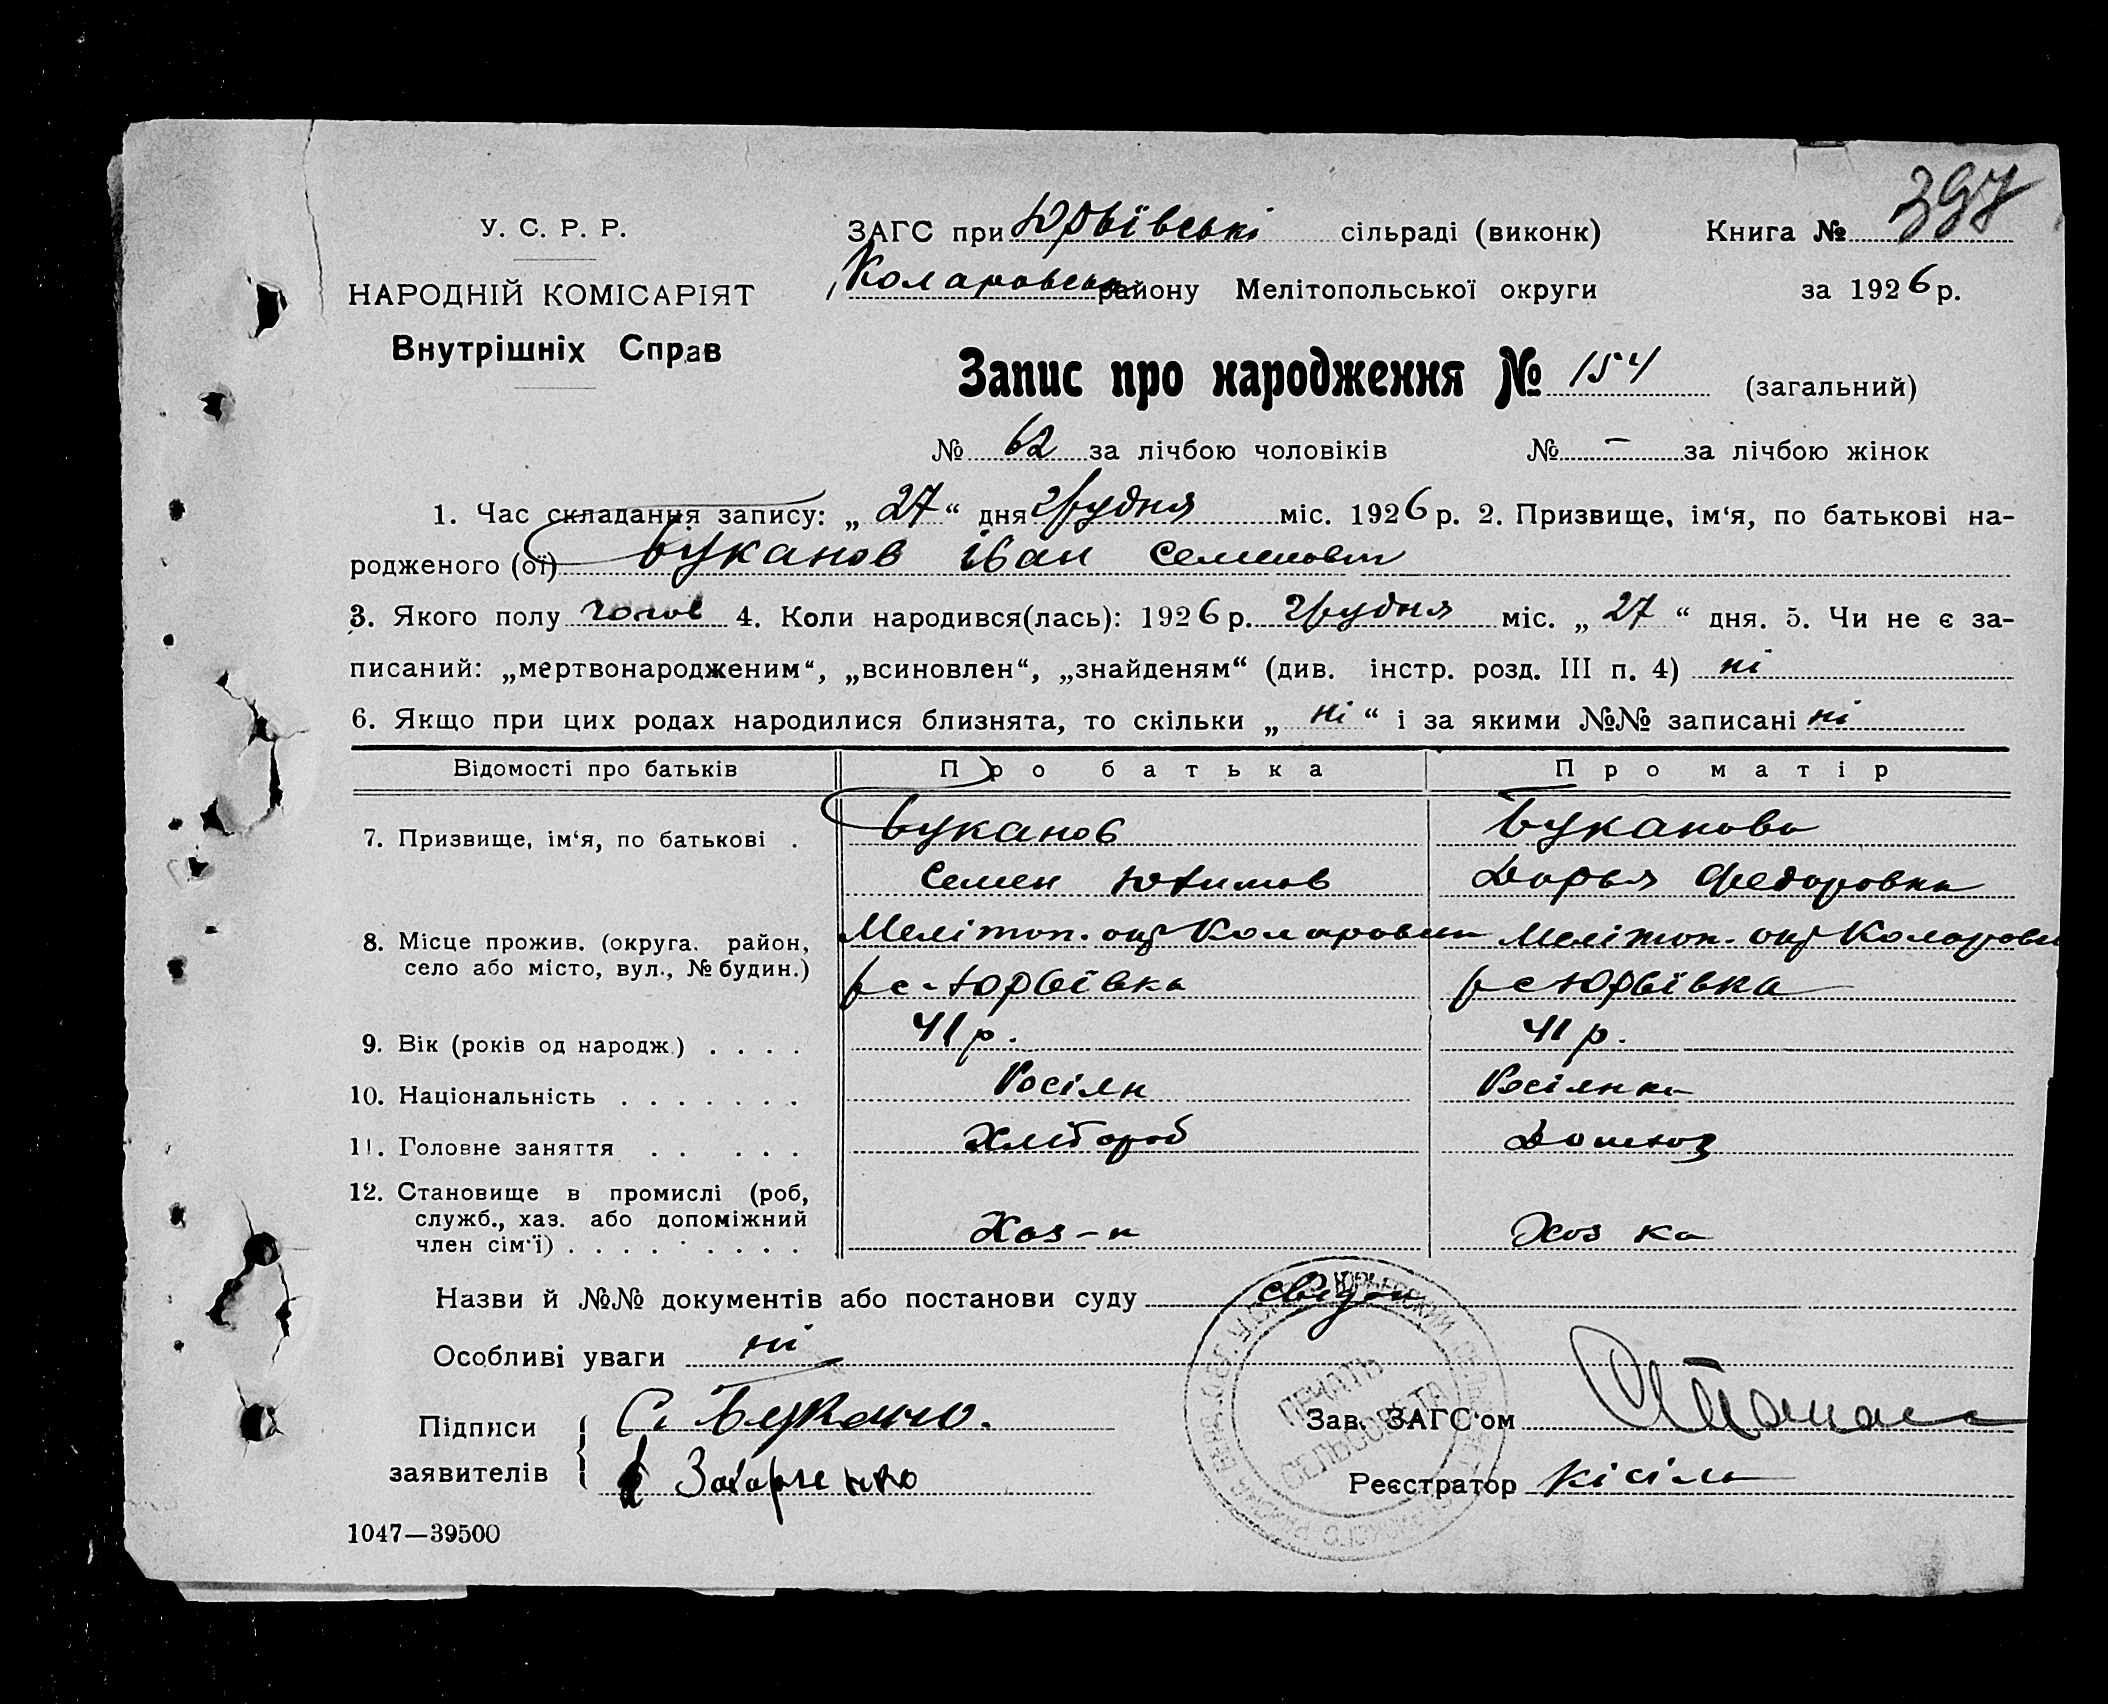 397
У. С. Р. Р.
ЗАГС при Юрьївські сільраді (виконк) Книга №
НАРОДНІЙ КОМІСАРІЯТ
Коларовськ району Мелітопольської округи за 1926 р.
Внутрішніх Справ
Запис про народження № 154 (загальний)
№ 62 за лічбою чоловіків № – за лічбою жінок
1. Час складання запису: „ 27 “ дня Грудня міс. 1926 р. 2. Призвище, ім‘я, по батькові на-
родженого (ої) Буканов Іван Семенович
3. Якого полу чолов 4. Коли народився(лась): 1926 р. Грудня міс. „ 27 “ дня. 5. Чи не є за-
писаний: „мертвонародженим“, „всиновлен“, „знайденям“ (див. інстр. розд. III п. 4) ні
6. Якщо при цих родах народилися близнята, то скільки „ ні “ і за якими №№ записані ні
Відомості про батьків Про батька Про матір
7. Призвище, ім‘я, по батькові . Буканов Буканова
Семен Юхимов Дарья Федоровна
8. Місце прожив. (округа, район, Мелітоп. окр Коларовськ Мелітоп. окр Коларовськ
село або місто, вул., № будин.) р с-Юрьївка р с Юрьївка
9. Вік (років од народж.) . . . . 41 р. 41 р.
10. Національність . . . . . . . Росіян Росіянка
11. Головне заняття . . . . . Хлібороб Домхоз
12. Становище в промислі (роб,
служб., хаз. або допоміжний Хоз-н Хоз ка
член сім‘ї) . . . . . . . . .
Назви й №№ документів або постанови суду
Особливі уваги ні
Підписи С. Букано Зав. ЗАГС‘ом
заявителів Захарченко Реєстратор Кісіль
ПЕЧАТЬ
СЕЛЬСОВЕТА
1047—39500